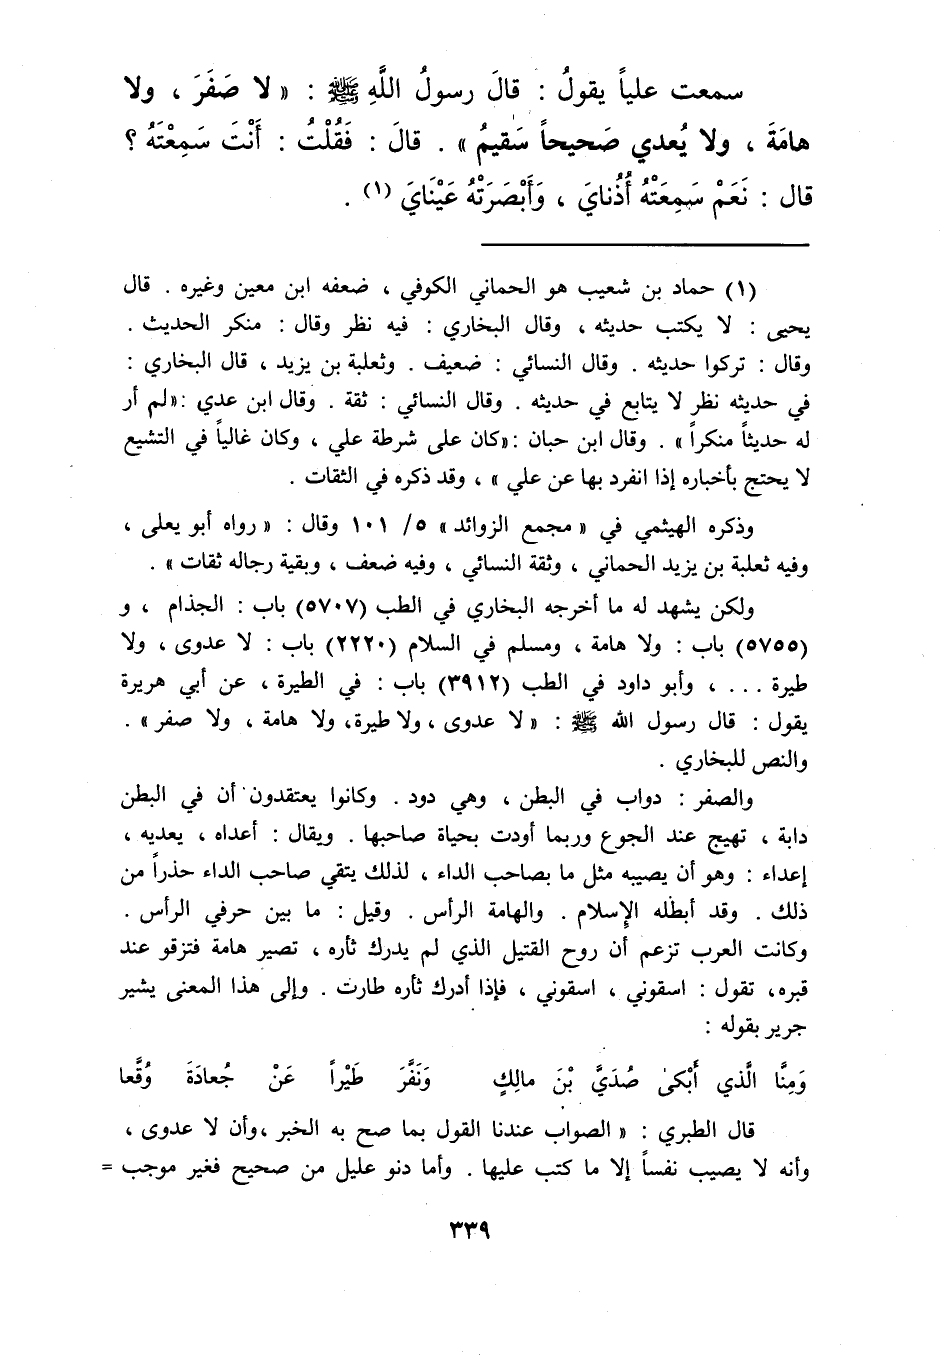 سمعت علياً يقولُ : قالَ رسولُ اللَّهِ ﷺ : « لا صَفَرَ ، ولا
هامَةَ ، ولا يُعدي صَحيحاً سَقيمُ » . قالَ : فَقُلْتُ : أَنْتَ سَمِعْتَهُ ؟
قال : نَعَمْ سَمِعَتْهُ أُذُنايَ ، وَأَبْصَرَتْهُ عَيْنَايَ (١) .
(١) حماد بن شعيب هو الحماني الكوفي ، ضعفه ابن معين وغيره . قال
يحيى : لا يكتب حديثه ، وقال البخاري : فيه نظر وقال : منكر الحديث .
وقال : تركوا حديثه . وقال النسائي : ضعيف . وثعلبة بن يزيد ، قال البخاري :
في حديثه نظر لا يتابع في حديثه . وقال النسائي : ثقة . وقال ابن عدي :«لم أر
له حديثاً منكراً » . وقال ابن حبان :«كان على شرطة علي ، وكان غالياً في التشيع
لا يحتج بأخباره إذا انفرد بها عن علي » ، وقد ذكره في الثقات .
وذكره الهيثمي في « مجمع الزوائد » ٥/ ١٠١ وقال : « رواه أبو يعلى ،
وفيه ثعلبة بن يزيد الحماني ، وثقة النسائي ، وفيه ضعف ، وبقية رجاله ثقات » .
ولكن يشهد له ما أخرجه البخاري في الطب (٥٧٠٧) باب : الجذام ، و
(٥٧٥٥) باب : ولا هامة ، ومسلم في السلام (٢٢٢٠) باب : لا عدوى ، ولا
طيرة ... ، وأبو داود في الطب (٣٩١٢) باب : في الطيرة ، عن أبي هريرة
يقول : قال رسول الله ﷺ : « لا عدوى ، ولا طيرة، ولا هامة ، ولا صفر » .
والنص للبخاري .
والصفر : دواب في البطن ، وهي دود . وكانوا يعتقدون أن في البطن
دابة ، تهيج عند الجوع وربما أودت بحياة صاحبها . ويقال : أعداه ، يعديه ،
إعداء : وهو أن يصيبه مثل ما بصاحب الداء ، لذلك يتقي صاحب الداء حذراً من
ذلك . وقد أبطله الإسلام . والهامة الرأس . وقيل : ما بين حرفي الرأس .
وكانت العرب تزعم أن روح القتيل الذي لم يدرك ثأره ، تصير هامة فتزقو عند
قبره، تقول : اسقوني ، اسقوني ، فإذا أدرك ثأره طارت . وإلى هذا المعنى يشير
جرير بقوله :
وَمِنَّا الَّذي أَبْكىٰ صُدَيَّ بْنَ مالِكٍ وَنَفَّرَ طَيْراً عَنْ جُعادَةَ وُقَّعا
قال الطبري : « الصواب عندنا القول بما صح به الخبر ،وأن لا عدوى ،
وأنه لا يصيب نفساً إلا ما كتب عليها . وأما دنو عليل من صحيح فغير موجب =
٣٣٩